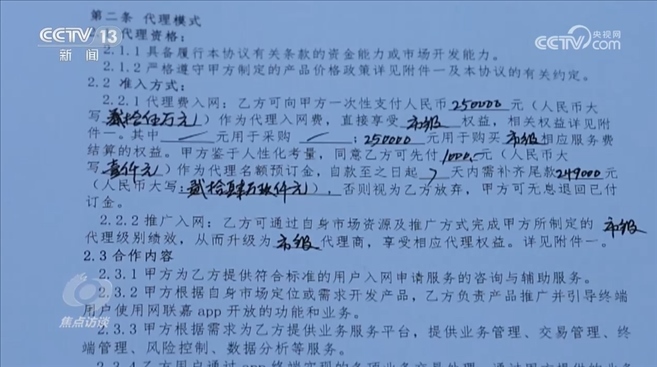 CCTV 13
新闻
央视网
CCTV.com
第二条 代理模式
代理资格：
2.1.1 具备履行本协议有关条款的资金能力或市场开发能力。
2.1.2 严格遵守甲方制定的产品价格政策详见附件一及本协议的有关约定。
2.2 准入方式：
2.2.1 代理费入网：乙方可向甲方一次性支付人民币250000元（人民币大
写贰拾伍万元）作为代理入网费，直接享受市级权益，相关权益详见附
件一。其中 元用于采购 ；250000元用于购买市级相应服务费
结算的权益。甲方鉴于人性化考量，同意乙方可先付1000元（人民币大
写壹仟元）作为代理名额预订金，自款至之日起7天内需补齐尾款249000元
（人民币大写：贰拾肆万玖仟元），否则视为乙方放弃，甲方可无息退回已付
订金。
2.2.2 推广入网：乙方可通过自身市场资源及推广方式完成甲方所制定的市级
代理级别绩效，从而升级为市级代理商，享受相应代理权益。详见附件一。
2.3 合作内容
2.3.1 甲方为乙方提供符合标准的用户入网申请服务的咨询与辅助服务。
2.3.2 甲方根据自身市场定位或需求开发产品，乙方负责产品推广并引导终端
用户使用网联嘉app开放的功能和业务。
2.3.3 甲方根据需求为乙方提供业务服务平台，提供业务管理、交易管理、终
端管理、风险控制、数据分析等服务。
焦点访谈